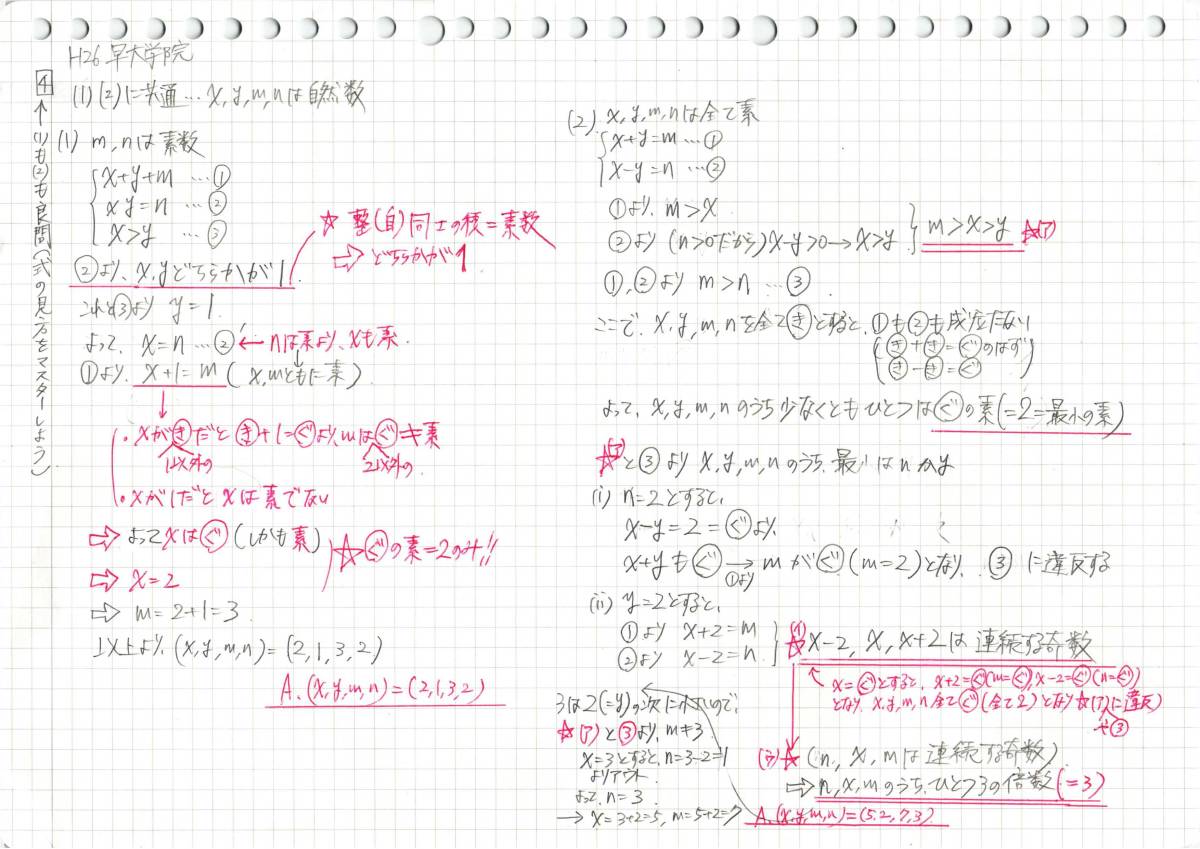 H26 早大学院
4 ← (1)も(2)も良問(式の見方をマスターしよう)
(1)(2)に共通…x,y,m,nは自然数
(1) m,nは素数
x+y+m …①
xy=n …②
x>y …③
☆ 整(自)同士の積=素数
⇨ どちらかが1
②より、x,yどちらかが1.
これと③より y=1.
よって、x=n …②' ← nは素より、xも素.
①より、x+1=m (x,mともに素)
・xがきだと き+1=ぐより、mはぐキ素
1以外の 2以外の
・xが1だと xは素でない
⇨ よってxはぐ(しかも素)
☆ぐの素=2のみ!!
⇨ x=2
⇨ m=2+1=3
以上より、(x,y,m,n)=(2,1,3,2)
A.(x,y,m,n)=(2,1,3,2)
(2) x,y,m,nは全て素
x+y=m …①
x-y=n …②
①より、m>x
②より (n>0だから)x-y>0→x>y
m>x>y ☆(ア)
①,②より m>n …③
ここで、x,y,m,nを全てきとすると、①も②も成立たない
(き+き=ぐのはず
き-き=ぐ)
よって、x,y,m,nのうち少なくともひとつはぐの素(=2=最小の素)
☆(ア)と③より x,y,m,nのうち、最小はnかy
(i) n=2とすると、
x-y=2=ぐより、
x+yもぐ → mがぐ(m=2)となり、③に違反する
①より
(ii) y=2とすると、
①より x+2=m
②より x-2=n
☆(イ) x-2, x, x+2は連続する奇数
x=ぐとすると、x+2=ぐ(m=ぐ),x-2=ぐ(n=ぐ)
となり、x,y,m,n全てぐ(全て2)となり☆(ア)に違反
や③
(ウ)☆ (n, x, mは連続する奇数)
⇨ n,x,mのうち、ひとつ3の倍数(=3)
3は2(=y)の次に小さいので、
☆(ア)と③より、m≠3.
x=3とすると、n=3-2=1
よりアウト.
よって、n=3
→ x=3+2=5, m=5+2=7
A.(x,y,m,n)=(5,2,7,3)